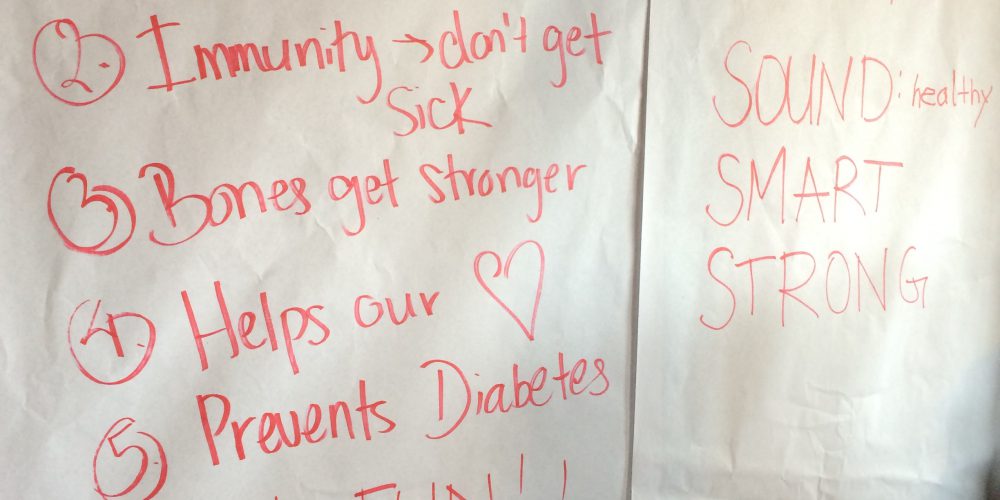 2. Immunity → don't get
sick
3. Bones get stronger
4. Helps our ♡
5. Prevents Diabetes
SOUND: healthy
SMART
STRONG